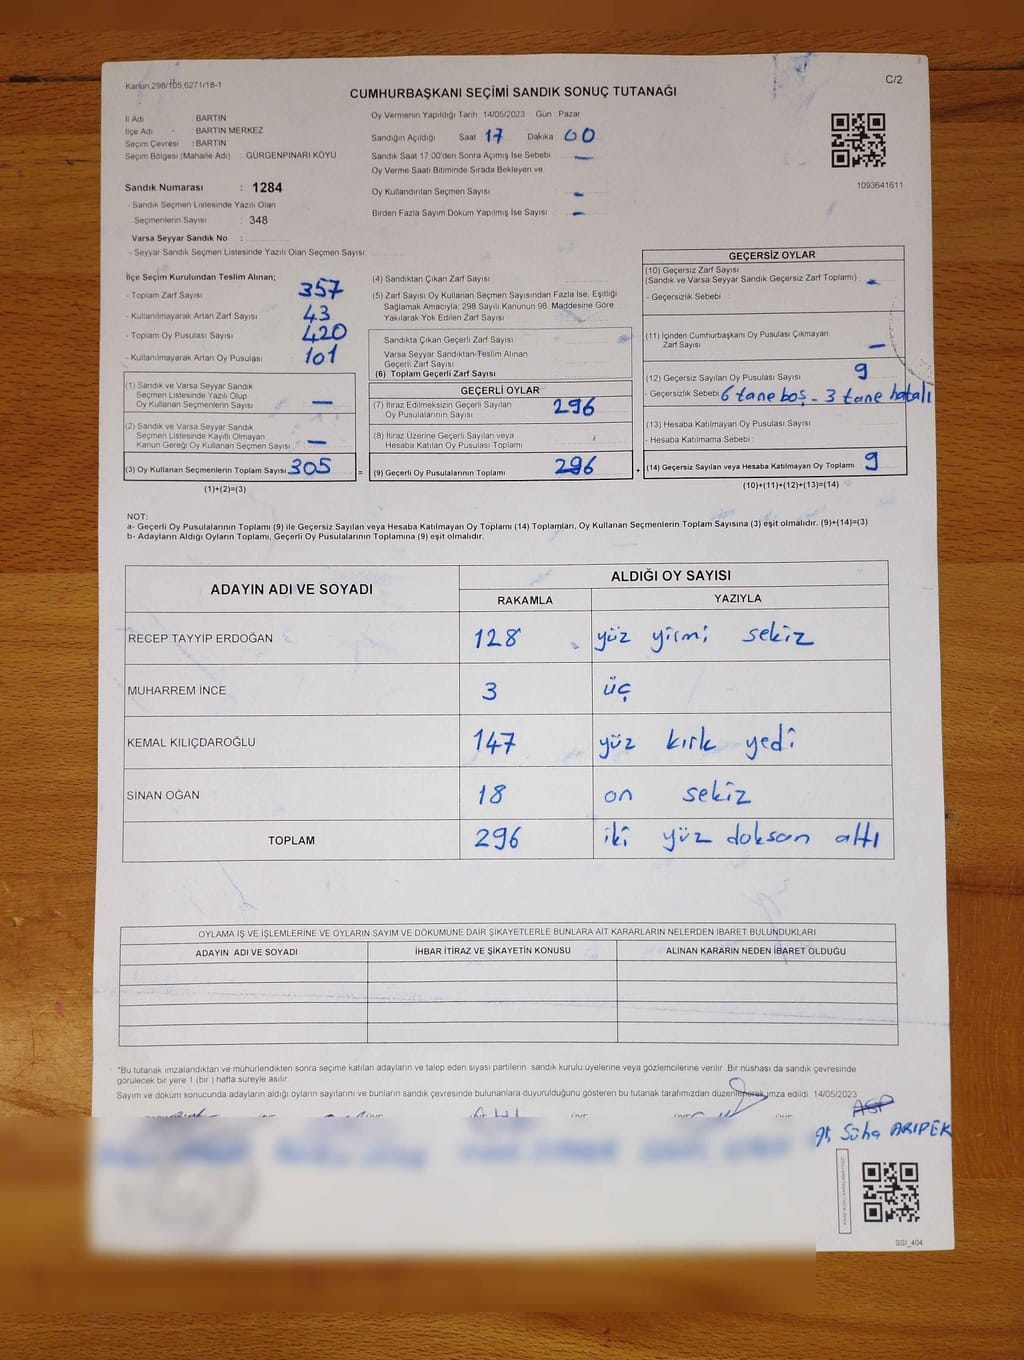 Kanun:298/105 6271/18-1
C/2
CUMHURBAŞKANI SEÇİMİ SANDIK SONUÇ TUTANAĞI
İl Adı : BARTIN
İlçe Adı - BARTIN MERKEZ
Seçim Çevresi : BARTIN
Seçim Bölgesi (Mahalle Adı) : GÜRGENPINARI KÖYÜ
Sandık Numarası : 1284
- Sandık Seçmen Listesinde Yazılı Olan
Seçmenlerin Sayısı : 348
Varsa Seyyar Sandık No :
- Seyyar Sandık Seçmen Listesinde Yazılı Olan Seçmen Sayısı:
Oy Vermenin Yapıldığı Tarih 14/05/2023 Gün : Pazar
Sandığın Açıldığı Saat 17 Dakika 00
Sandık Saat 17.00'den Sonra Açımış İse Sebebi —
Oy Verme Saati Bitiminde Sırada Bekleyen ve
Oy Kullandırılan Seçmen Sayısı -
Birden Fazla Sayım Döküm Yapılmış İse Sayısı -
1093641611
İlçe Seçim Kurulundan Teslim Alınan;
- Toplam Zarf Sayısı 357
- Kullanılmayarak Artan Zarf Sayısı 43
- Toplam Oy Pusulası Sayısı 420
- Kullanılmayarak Artan Oy Pusulası 101
(1) Sandık ve Varsa Seyyar Sandık
Seçmen Listesinde Yazılı Olup
Oy Kullanan Seçmenlerin Sayısı —
(2) Sandık ve Varsa Seyyar Sandık
Seçmen Listesinde Kayıtlı Olmayan
Kanun Gereği Oy Kullanan Seçmen Sayısı —
(3) Oy Kullanan Seçmenlerin Toplam Sayısı 305 =
(1)+(2)=(3)
(4) Sandıktan Çıkan Zarf Sayısı
(5) Zarf Sayısı Oy Kullanan Seçmen Sayısından Fazla İse, Eşitliği
Sağlamak Amacıyla; 298 Sayılı Kanunun 98. Maddesine Göre
Yakılarak Yok Edilen Zarf Sayısı
Sandıkta Çıkan Geçerli Zarf Sayısı
Varsa Seyyar Sandıktan Teslim Alınan
Geçerli Zarf Sayısı
(6) Toplam Geçerli Zarf Sayısı
GEÇERLİ OYLAR
(7) İtiraz Edilmeksizin Geçerli Sayılan
Oy Pusulalarının Sayısı 296
(8) İtiraz Üzerine Geçerli Sayılan veya
Hesaba Katılan Oy Pusulası Toplamı
(9) Geçerli Oy Pusulalarının Toplamı 296 +
GEÇERSİZ OYLAR
(10) Geçersiz Zarf Sayısı
(Sandık ve Varsa Seyyar Sandık Geçersiz Zarf Toplamı) -
- Geçersizlik Sebebi
(11) İçinden Cumhurbaşkanı Oy Pusulası Çıkmayan
Zarf Sayısı —
(12) Geçersiz Sayılan Oy Pusulası Sayısı 9
- Geçersizlik Sebebi 6 tane boş - 3 tane hatalı
(13) Hesaba Katılmayan Oy Pusulası Sayısı
- Hesaba Katılmama Sebebi
(14) Geçersiz Sayılan veya Hesaba Katılmayan Oy Toplamı 9
(10)+(11)+(12)+(13)=(14)
NOT:
a- Geçerli Oy Pusulalarının Toplamı (9) ile Geçersiz Sayılan veya Hesaba Katılmayan Oy Toplamı (14) Toplamları, Oy Kullanan Seçmenlerin Toplam Sayısına (3) eşit olmalıdır. (9)+(14)=(3)
b- Adayların Aldığı Oyların Toplamı, Geçerli Oy Pusulalarının Toplamına (9) eşit olmalıdır.
ADAYIN ADI VE SOYADI ALDIĞI OY SAYISI
RAKAMLA YAZIYLA
RECEP TAYYİP ERDOĞAN 128 yüz yirmi sekiz
MUHARREM İNCE 3 üç
KEMAL KILIÇDAROĞLU 147 yüz kırk yedi
SİNAN OĞAN 18 on sekiz
TOPLAM 296 iki yüz doksan altı
OYLAMA İŞ VE İŞLEMLERİNE VE OYLARIN SAYIM VE DÖKÜMÜNE DAİR ŞİKAYETLERLE BUNLARA AİT KARARLARIN NELERDEN İBARET BULUNDUKLARI
ADAYIN ADI VE SOYADI İHBAR İTİRAZ VE ŞİKAYETİN KONUSU ALINAN KARARIN NEDEN İBARET OLDUĞU
*Bu tutanak imzalandıktan ve mühürlendikten sonra seçime katılan adayların ve talep eden siyasi partilerin sandık kurulu üyelerine veya gözlemcilerine verilir. Bir nüshası da sandık çevresinde
görülecek bir yere 1 (bir) hafta süreyle asılır.
Sayım ve döküm sonucunda adayların aldığı oyların sayılarını ve bunların sandık çevresinde bulunanlara duyurulduğunu gösteren bu tutanak tarafımızdan düzenlenerek imza edildi. 14/05/2023
Süha ARIPEK
SSI_404